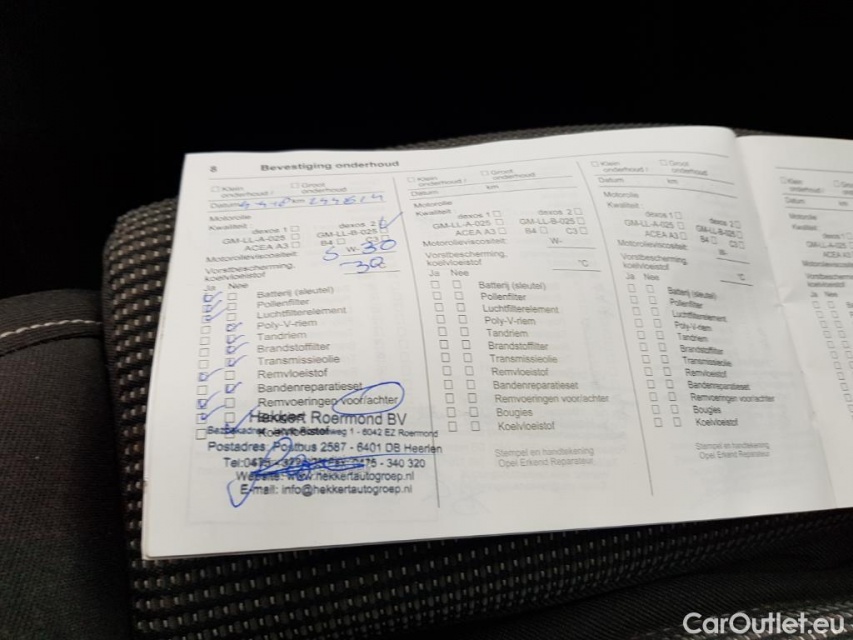 8 Bevestiging onderhoud
Klein onderhoud / Groot onderhoud
Datum km
Motorolie
Kwaliteit: dexos 1 dexos 2
GM-LL-A-025 GM-LL-B-025
ACEA A3 B4 C3
Motorolieviscositeit: 5 W- 30
Vorstbescherming, koelvloeistof 30
Ja Nee
Batterij (sleutel)
Pollenfilter
Luchtfilterelement
Poly-V-riem
Tandriem
Brandstoffilter
Transmissieolie
Remvloeistof
Bandenreparatieset
Remvoeringen voor/achter
Hekkert Roermond BV
6042 EZ Roermond
Postadres: Postbus 2587 - 6401 DB Heerlen
Tel: 0475 - 340 320
Website: www.hekkertautogroep.nl
E-mail: info@hekkertautogroep.nl
Klein onderhoud / Groot onderhoud
Datum km
Motorolie
Kwaliteit: dexos 1 dexos 2
GM-LL-A-025 GM-LL-B-025
ACEA A3 B4 C3
Motorolieviscositeit: W-
Vorstbescherming, koelvloeistof °C
Ja Nee
Batterij (sleutel)
Pollenfilter
Luchtfilterelement
Poly-V-riem
Tandriem
Brandstoffilter
Transmissieolie
Remvloeistof
Bandenreparatieset
Remvoeringen voor/achter
Bougies
Koelvloeistof
Stempel en handtekening
Opel Erkend Reparateur
Klein onderhoud / Groot onderhoud
Datum km
Motorolie
Kwaliteit: dexos 1 dexos 2
GM-LL-A-025 GM-LL-B-025
ACEA A3 B4 C3
Motorolieviscositeit: W-
Vorstbescherming, koelvloeistof °C
Ja Nee
Batterij (sleutel)
Pollenfilter
Luchtfilterelement
Poly-V-riem
Tandriem
Brandstoffilter
Transmissieolie
Remvloeistof
Bandenreparatieset
Remvoeringen voor/achter
Bougies
Koelvloeistof
Stempel en handtekening
Opel Erkend Reparateur
Klein onderhoud /
Datum
Motorolie
Kwaliteit:
GM-LL-A-025
ACEA A3
Motorolieviscositeit:
Vorstbescherming, koelvloeistof
Ja Nee
CarOutlet.eu